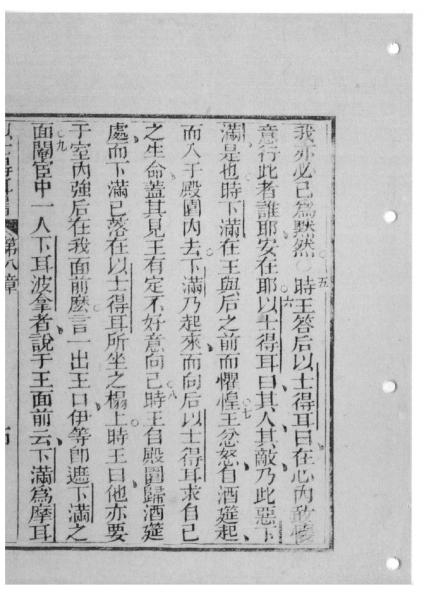 我亦必已爲默然○五時王答后以士得耳曰在心內敢懷
意行此者誰耶安在耶○六以士得耳曰其人其敵乃此惡下
滿是也時下滿在王與后之前而懼惶○七王忿怒自酒筵起
而入于殿園內去下滿乃起來而向后以士得耳求自己
之生命蓋其見王有定不好意向己○八時王自殿園歸酒筵
處而下滿已落在以士得耳所坐之榻上時王曰他亦要
于室內強后在我面前麽言一出王口伊等卽遮下滿之
面○九閹宦中一人下耳波拿者說于王面前云下滿爲摩耳
以士得耳書 第八章